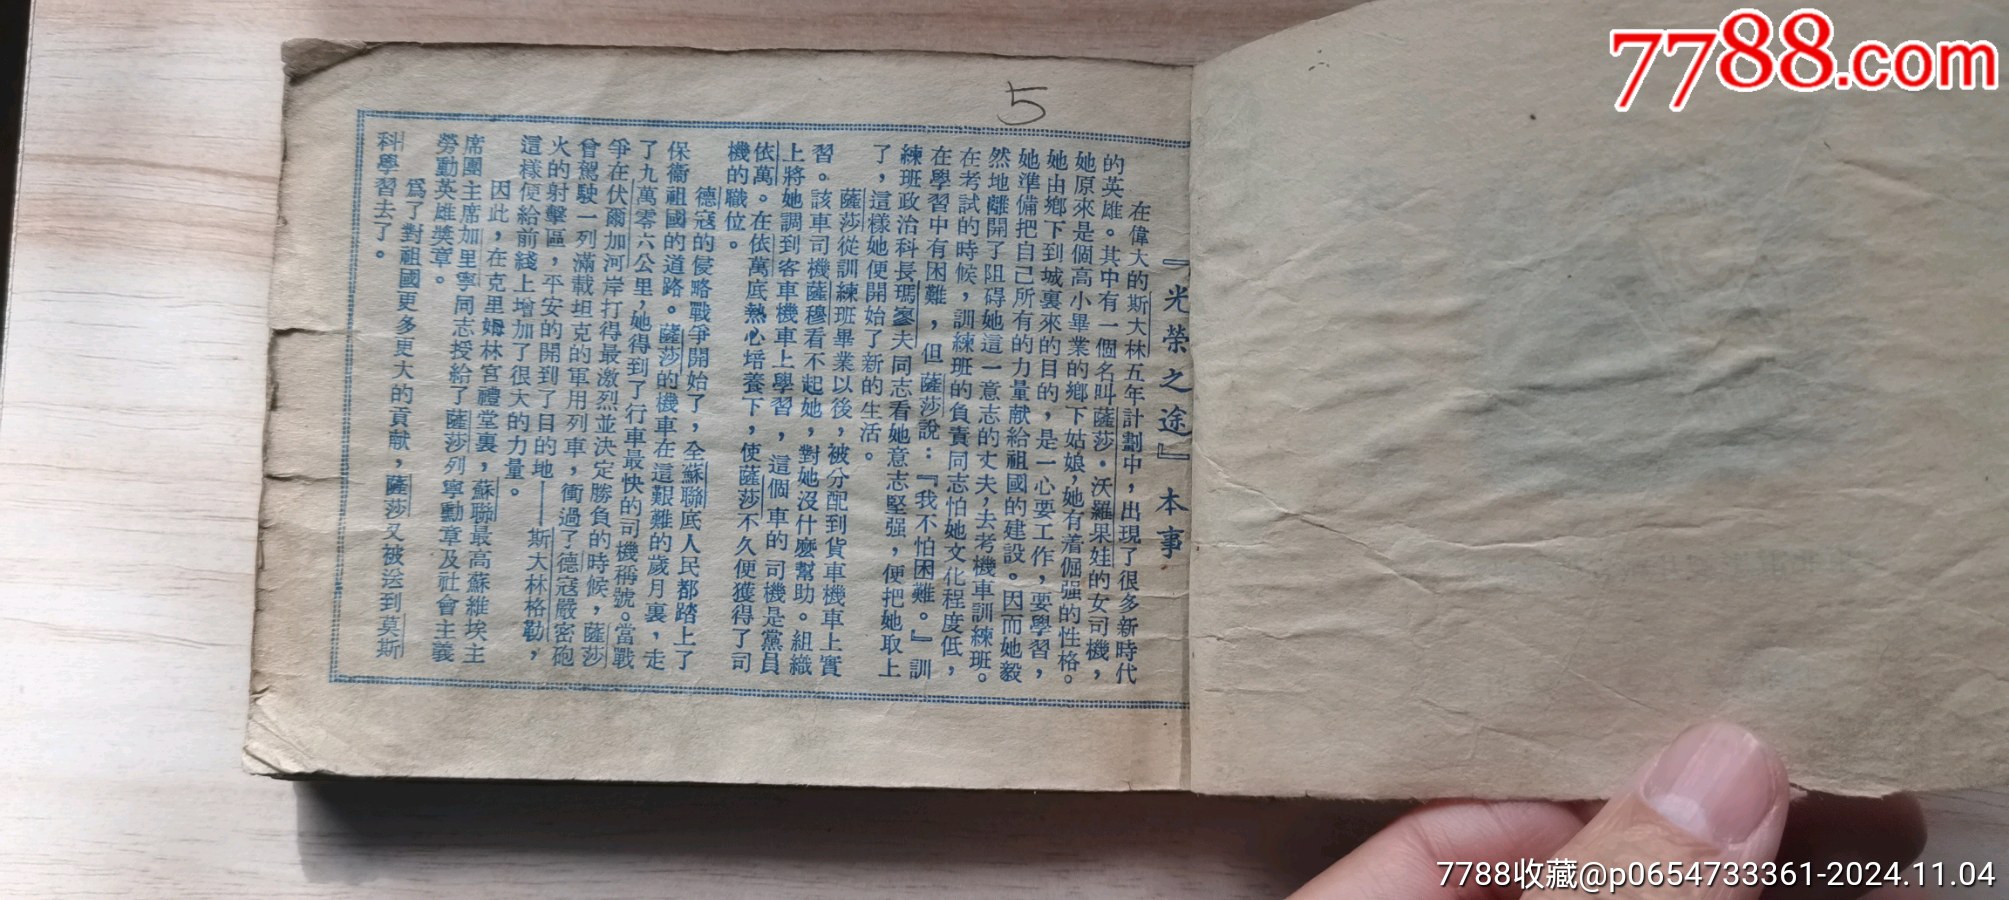 7788.com
5
『光榮之途』本事
在偉大的斯大林五年計劃中，出現了很多新時代
的英雄。其中有一個名叫薩莎·沃羅果娃的女司機，
她原來是個高小畢業的鄉下姑娘，她有着倔强的性格。
她由鄉下到城裏來的目的，是一心要工作，要學習，
她準備把自己所有的力量献給祖國的建設。因而她毅
然地離開了阻碍她這一意志的丈夫，去考機車訓練班。
在考試的時候，訓練班的負責同志怕她文化程度低，
在學習中有困難，但薩莎說：『我不怕困難。』訓
練班政治科長瑪寥夫同志看她意志堅强，便把她取上
了，這樣她便開始了新的生活。
薩莎從訓練班畢業以後，被分配到貨車機車上實
習。該車司機薩穆看不起她，對她沒什麽幫助。組織
上將她調到客車機車上學習，這個車的司機是黨員
依萬。在依萬底熱心培養下，使薩莎不久便獲得了司
機的職位。
德寇的侵略戰爭開始了，全蘇聯底人民都踏上了
保衞祖國的道路。薩莎的機車在這艱難的歲月裏，走
了九萬零六公里，她得到了行車最快的司機稱號。當戰
爭在伏爾加河岸打得最激烈並決定勝負的時候，薩莎
曾駕駛一列滿載坦克的軍用列車，衝過了德寇嚴密砲
火的射擊區，平安的開到了目的地——斯大林格勒，
這樣便給前綫上增加了很大的力量。
因此，在克里姆林宮禮堂裏，蘇聯最高蘇維埃主
席團主席加里寧同志授給了薩莎列寧勳章及社會主義
勞動英雄獎章。
爲了對祖國更多更大的貢献，薩莎又被送到莫斯
科學習去了。
7788收藏@p0654733361-2024.11.04